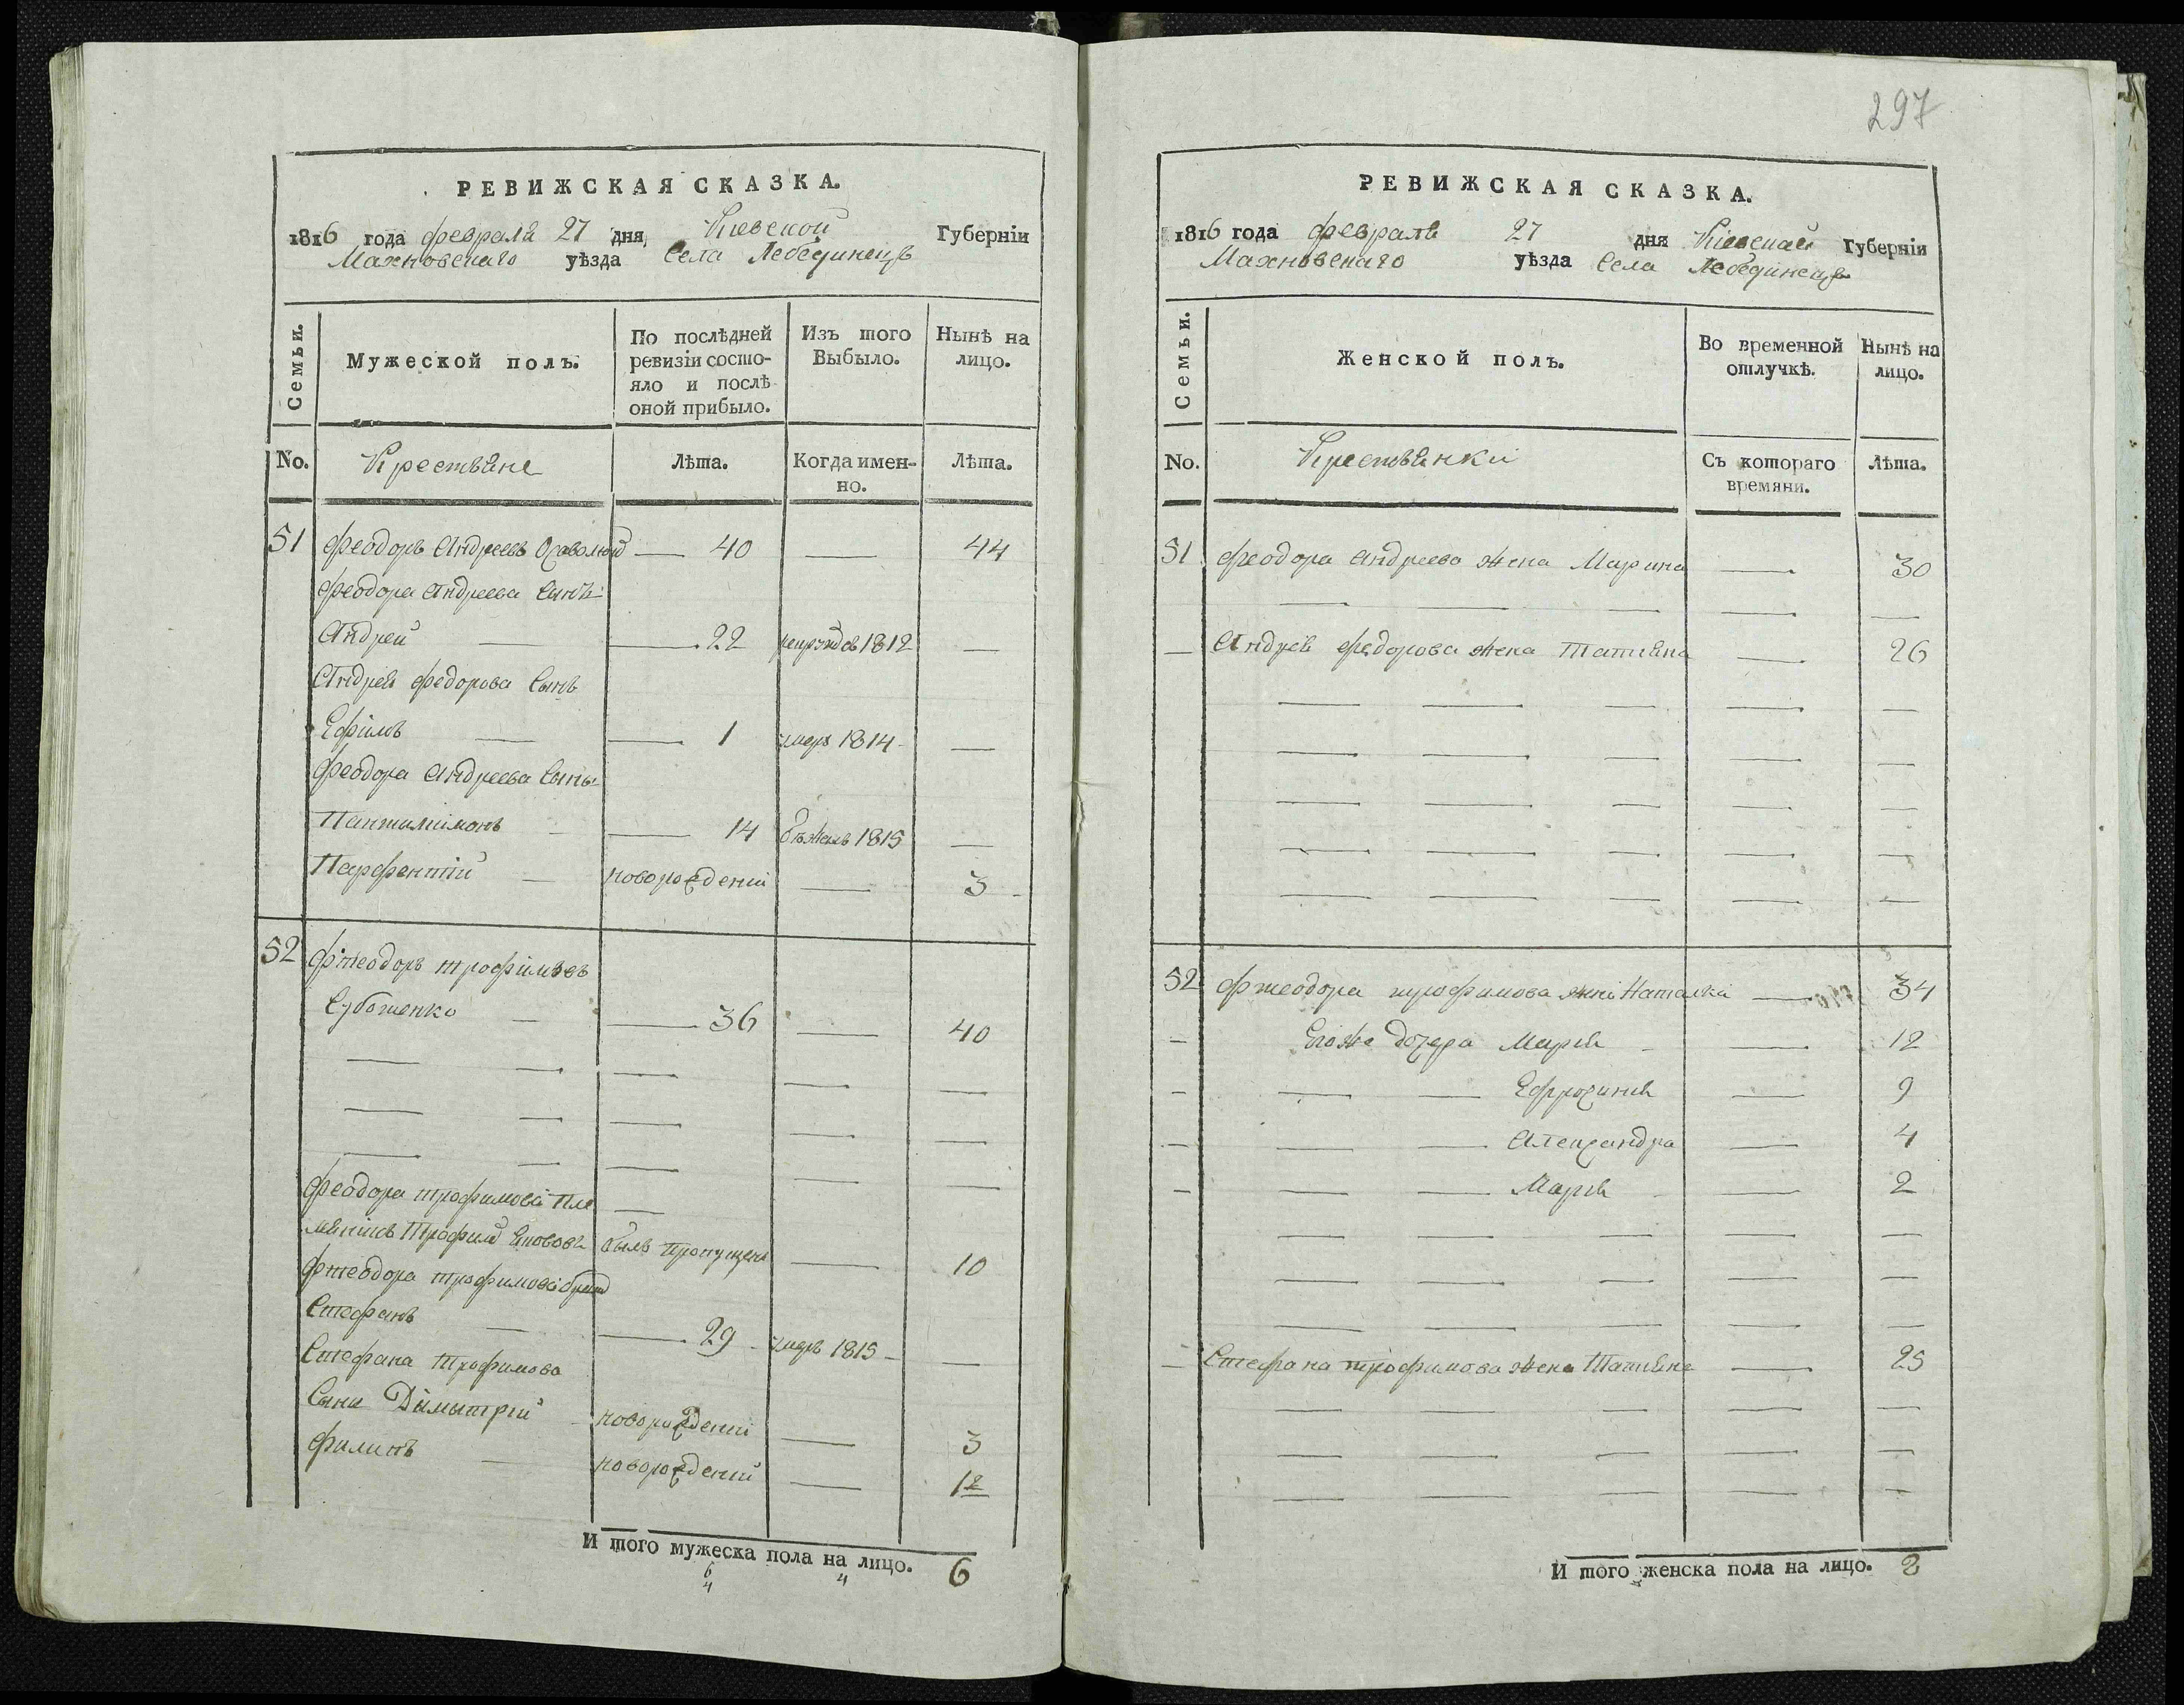 РЕВИЖСКАЯ СКАЗКА.
1816 года февраля 27 дня Киевской Губернїи
Махновского уѣзда Села Лебединецъ
Семьи.
Мужеской полъ.
По послѣдней ревизїи состояло и послѣ оной прибыло.
Изъ того Выбыло.
Нынѣ на лицо.
No. Крестьяне Лѣта. Когда именно. Лѣта.
51 Феодоръ Андреевъ — 40 — 44
Феодора Андреева Сынъ
Андрей — — 22 1812 —
Андрея Федорова Сынъ
Ефімъ — — 1 умеръ 1814 —
Феодора Андреева Сынъ
Пантилимонъ — — 14 бѣжалъ 1815 —
Парфентій — новорожденій — 3
52 Фтеодоръ трофімовъ
— — 36 — 40
— — — — —
— — — — —
— — — — —
Феодора трофимова Пле
мянікъ Трофим былъ пропущенъ — 10
Фтеодора трофимова братъ
Стефанъ — — 29 умеръ 1815 —
Стефана Трофимова
Сыни Дїмытрій новорожденій — 3
Филипъ — новорожденій — 1½
И того мужеска пола на лицо. 6
6
4 4
297
РЕВИЖСКАЯ СКАЗКА.
1816 года февраля 27 дня Кіевской Губернїи
Махновского уѣзда Села Лебединецъ
Семьи.
Женской полъ.
Во временной отлучкѣ.
Нынѣ на лицо.
No. Крестьянки Съ котораго времяни. Лѣта.
51 Феодора Андреева жена Марина — 30
— Андрея Федорова жена Татияна — 26
52 Фтеодора трофимова жена Наталка — 34
— Егоже дочера Марія — 12
— — — Ефросиния — 9
— — — Александра — 4
— — — Марія — 2
— Стефана трофимова жена Татияна — 25
И того женска пола на лицо. 8